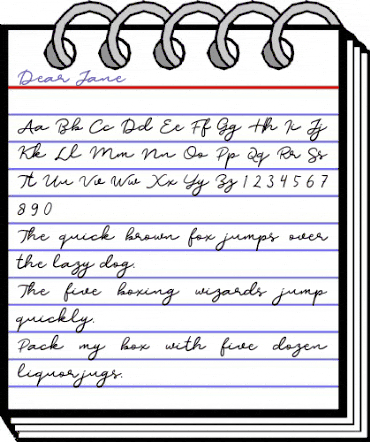 Dear Jane
Aa Bb Cc Dd Ee Ff Gg Hh Ii Jj
Kk Ll Mm Nn Oo Pp Qq Rr Ss
Tt Uu Vv Ww Xx Yy Zz 1 2 3 4 5 6 7
8 9 0
The quick brown fox jumps over
the lazy dog.
The five boxing wizards jump
quickly.
Pack my box with five dozen
liquor jugs.